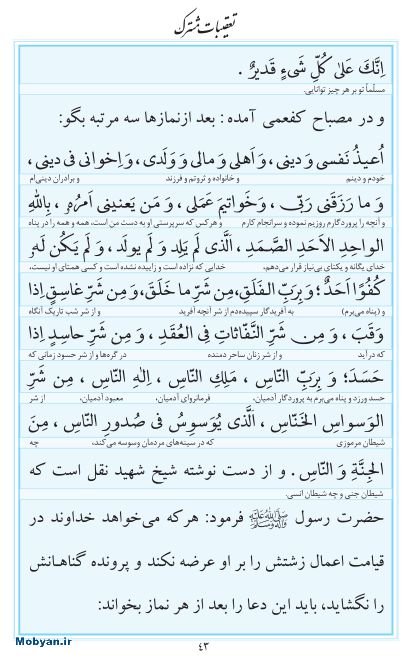 تعقیبات مشترک
اِنَّكَ عَلىٰ كُلِّ شَىءٍ قَديرٌ .
مسلّماً تو بر هر چیز توانایی.
و در مصباح کفعمی آمده : بعد ازنمازها سه مرتبه بگو:
اُعيذُ نَفسى وَ دينى ، وَ اَهلى وَ مالى وَ وَلَدى ، وَ اِخوانى فى دينى ،
خودم و دینم و خانواده و ثروتم و فرزند و برادران دینی‌ام
وَ ما رَزَقَنى رَبّى ، وَ خَواتيمَ عَمَلى ، وَ مَن يَعنينى اَمرُهُ ، بِاللهِ
و آنچه را پروردگارم روزیم نموده و سرانجام کارم و هر کس که سرپرستی او به دست من است، همه و همه را در پناه
الواحِدِ الاَحَدِ الصَّمَدِ ، اَلَّذى لَم يَلِد وَ لَم يولَد ، وَ لَم يَكُن لَهُ
خدای یگانه و یکتای بی‌نیاز قرار می‌دهم، خدایی که نزاده است و زاییده نشده است و کسی همتای او نیست،
كُفُوًا اَحَدٌ؛ وَ بِرَبِّ الفَلَقِ، مِن شَرِّ ما خَلَقَ، وَ مِن شَرِّ غاسِقٍ اِذا
و (پناه می‌برم) به آفریدگار سپیده‌دم از شر آنچه آفرید و از شر شب تاریک آنگاه
وَقَبَ ، وَ مِن شَرِّ النَّفّاثاتِ فِى العُقَدِ ، وَ مِن شَرِّ حاسِدٍ اِذا
که درآید و از شر زنان ساحر دمنده در گره‌ها و از شر حسود زمانی که
حَسَدَ؛ وَ بِرَبِّ النّاسِ ، مَلِكِ النّاسِ ، اِلٰهِ النّاسِ ، مِن شَرِّ
حسد ورزد و پناه می‌برم به پروردگار آدمیان، فرمانروای آدمیان، معبود آدمیان، از شر
الوَسواسِ الخَنّاسِ ، اَلَّذى يُوَسوِسُ فى صُدورِ النّاسِ ، مِنَ
شیطان مرموزی که در سینه‌های مردمان وسوسه می‌کند، چه
الجِنَّةِ وَ النّاسِ . و از دست نوشته شیخ شهید نقل است که
شیطان جنی و چه شیطان انسی.
حضرت رسول ﷺ فرمود: هرکه می‌خواهد خداوند در
قیامت اعمال زشتش را بر او عرضه نکند و پرونده گناهانش
را نگشاید، باید این دعا را بعد از هر نماز بخواند:
۴۳
Mobyan.ir